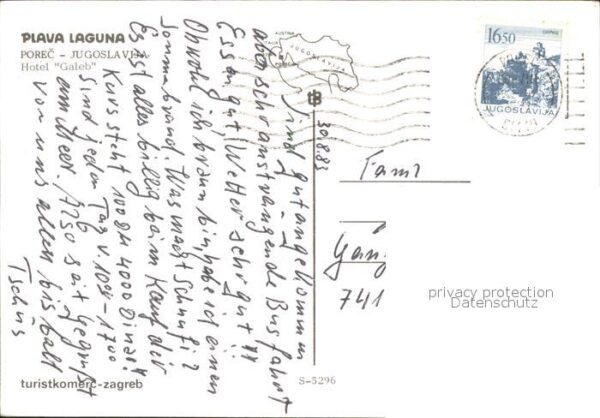 PLAVA LAGUNA
POREČ - JUGOSLAVIJA
Hotel "Galeb"
AUSTRIA
JUGOSLAVIJA
16,50
JUGOSLAVIJA
30.8.83
Sind gut angekommen
aber sehr anstrengende Busfahrt
Essen gut Wetter sehr gut!!!
Obwohl ich braun bin, habe ich einen
Sonnenbrand. Was macht Schnufi?
Es ist alles billig beim Kauf der
Kurs steht 100 DM 4000 Dinar!
Sind jeden Tag v. 10 00 - 17 00
am Meer. Also seit gegrüßt
von uns allen bis bald
Tschüs
Fam
Gän
741
privacy protection
Datenschutz
turistkomerc-zagreb
S-5296